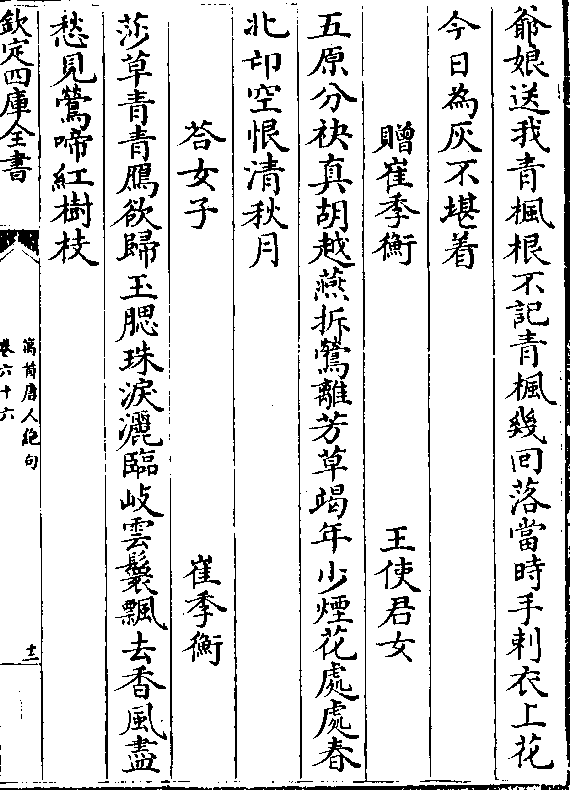 爺娘送我青楓根不記青楓幾回落當時手刺衣上花
今日為灰不堪着
贈崔季衡 王使君女
五原分袂真胡越燕拆鶯離芳草竭年少煙花處處春
北邙空恨清秋月
荅女子 崔季衡
莎草青青鴈欲歸玉腮珠淚灑臨岐雲鬟飄去香風盡
愁見鶯啼紅樹枝
欽定四庫全書
萬首唐人絶句
卷六十六
十二